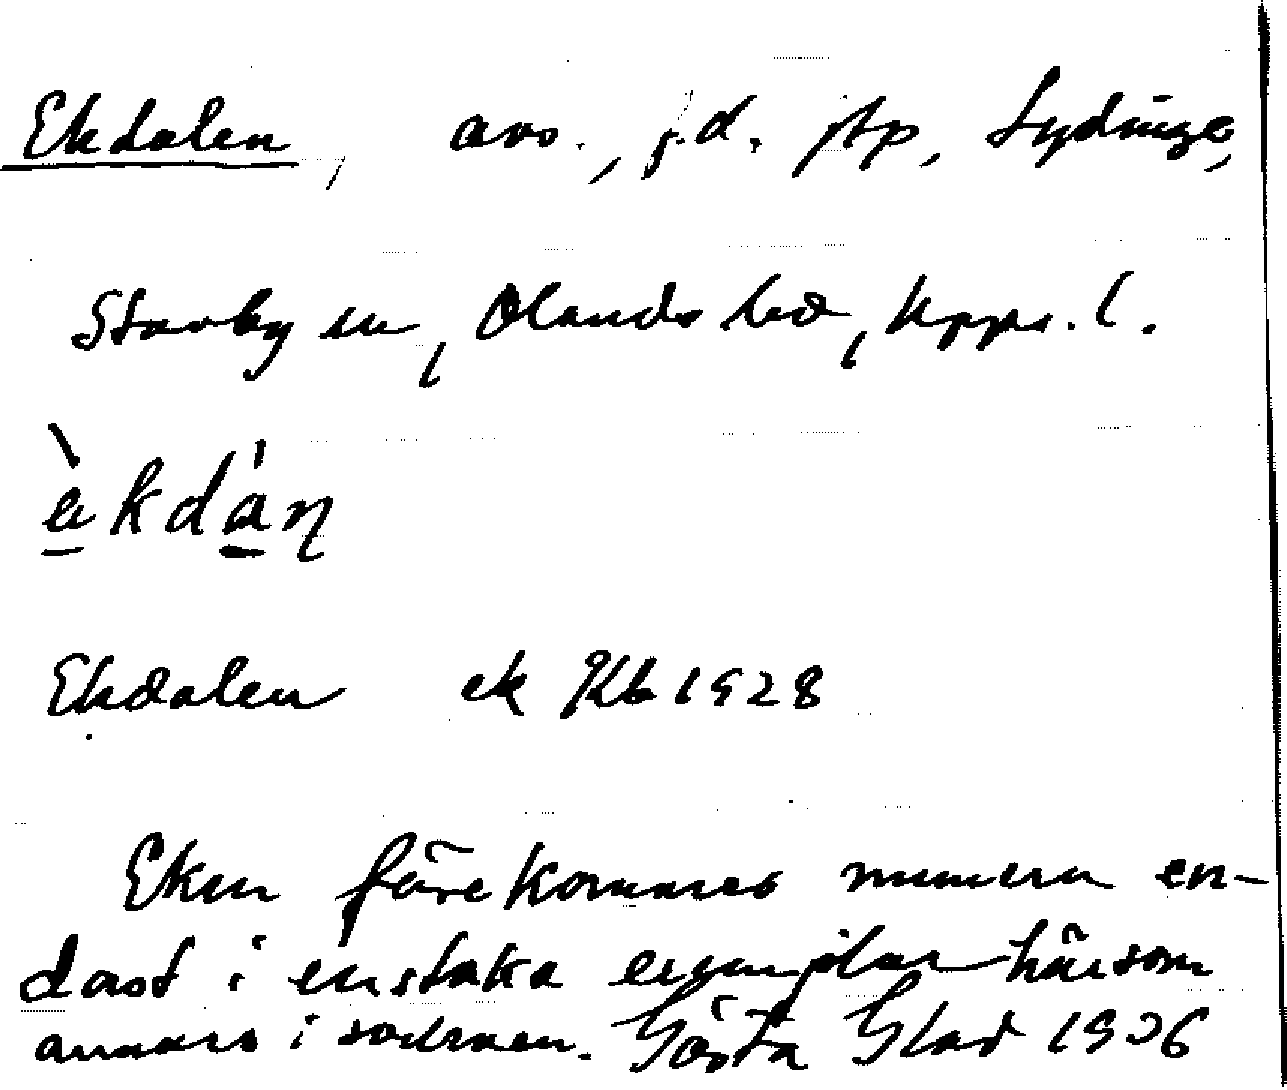 Ekdalen, avs., f.d. stp, Lydinge,
Stavby sn, Olands hd, Upps. l.
èkdàn
Ekdalen ek Kb 1928
Eken förekommer numera en-
dast i enstaka exemplar här som
annars i socknen. Gösta Glad 1936